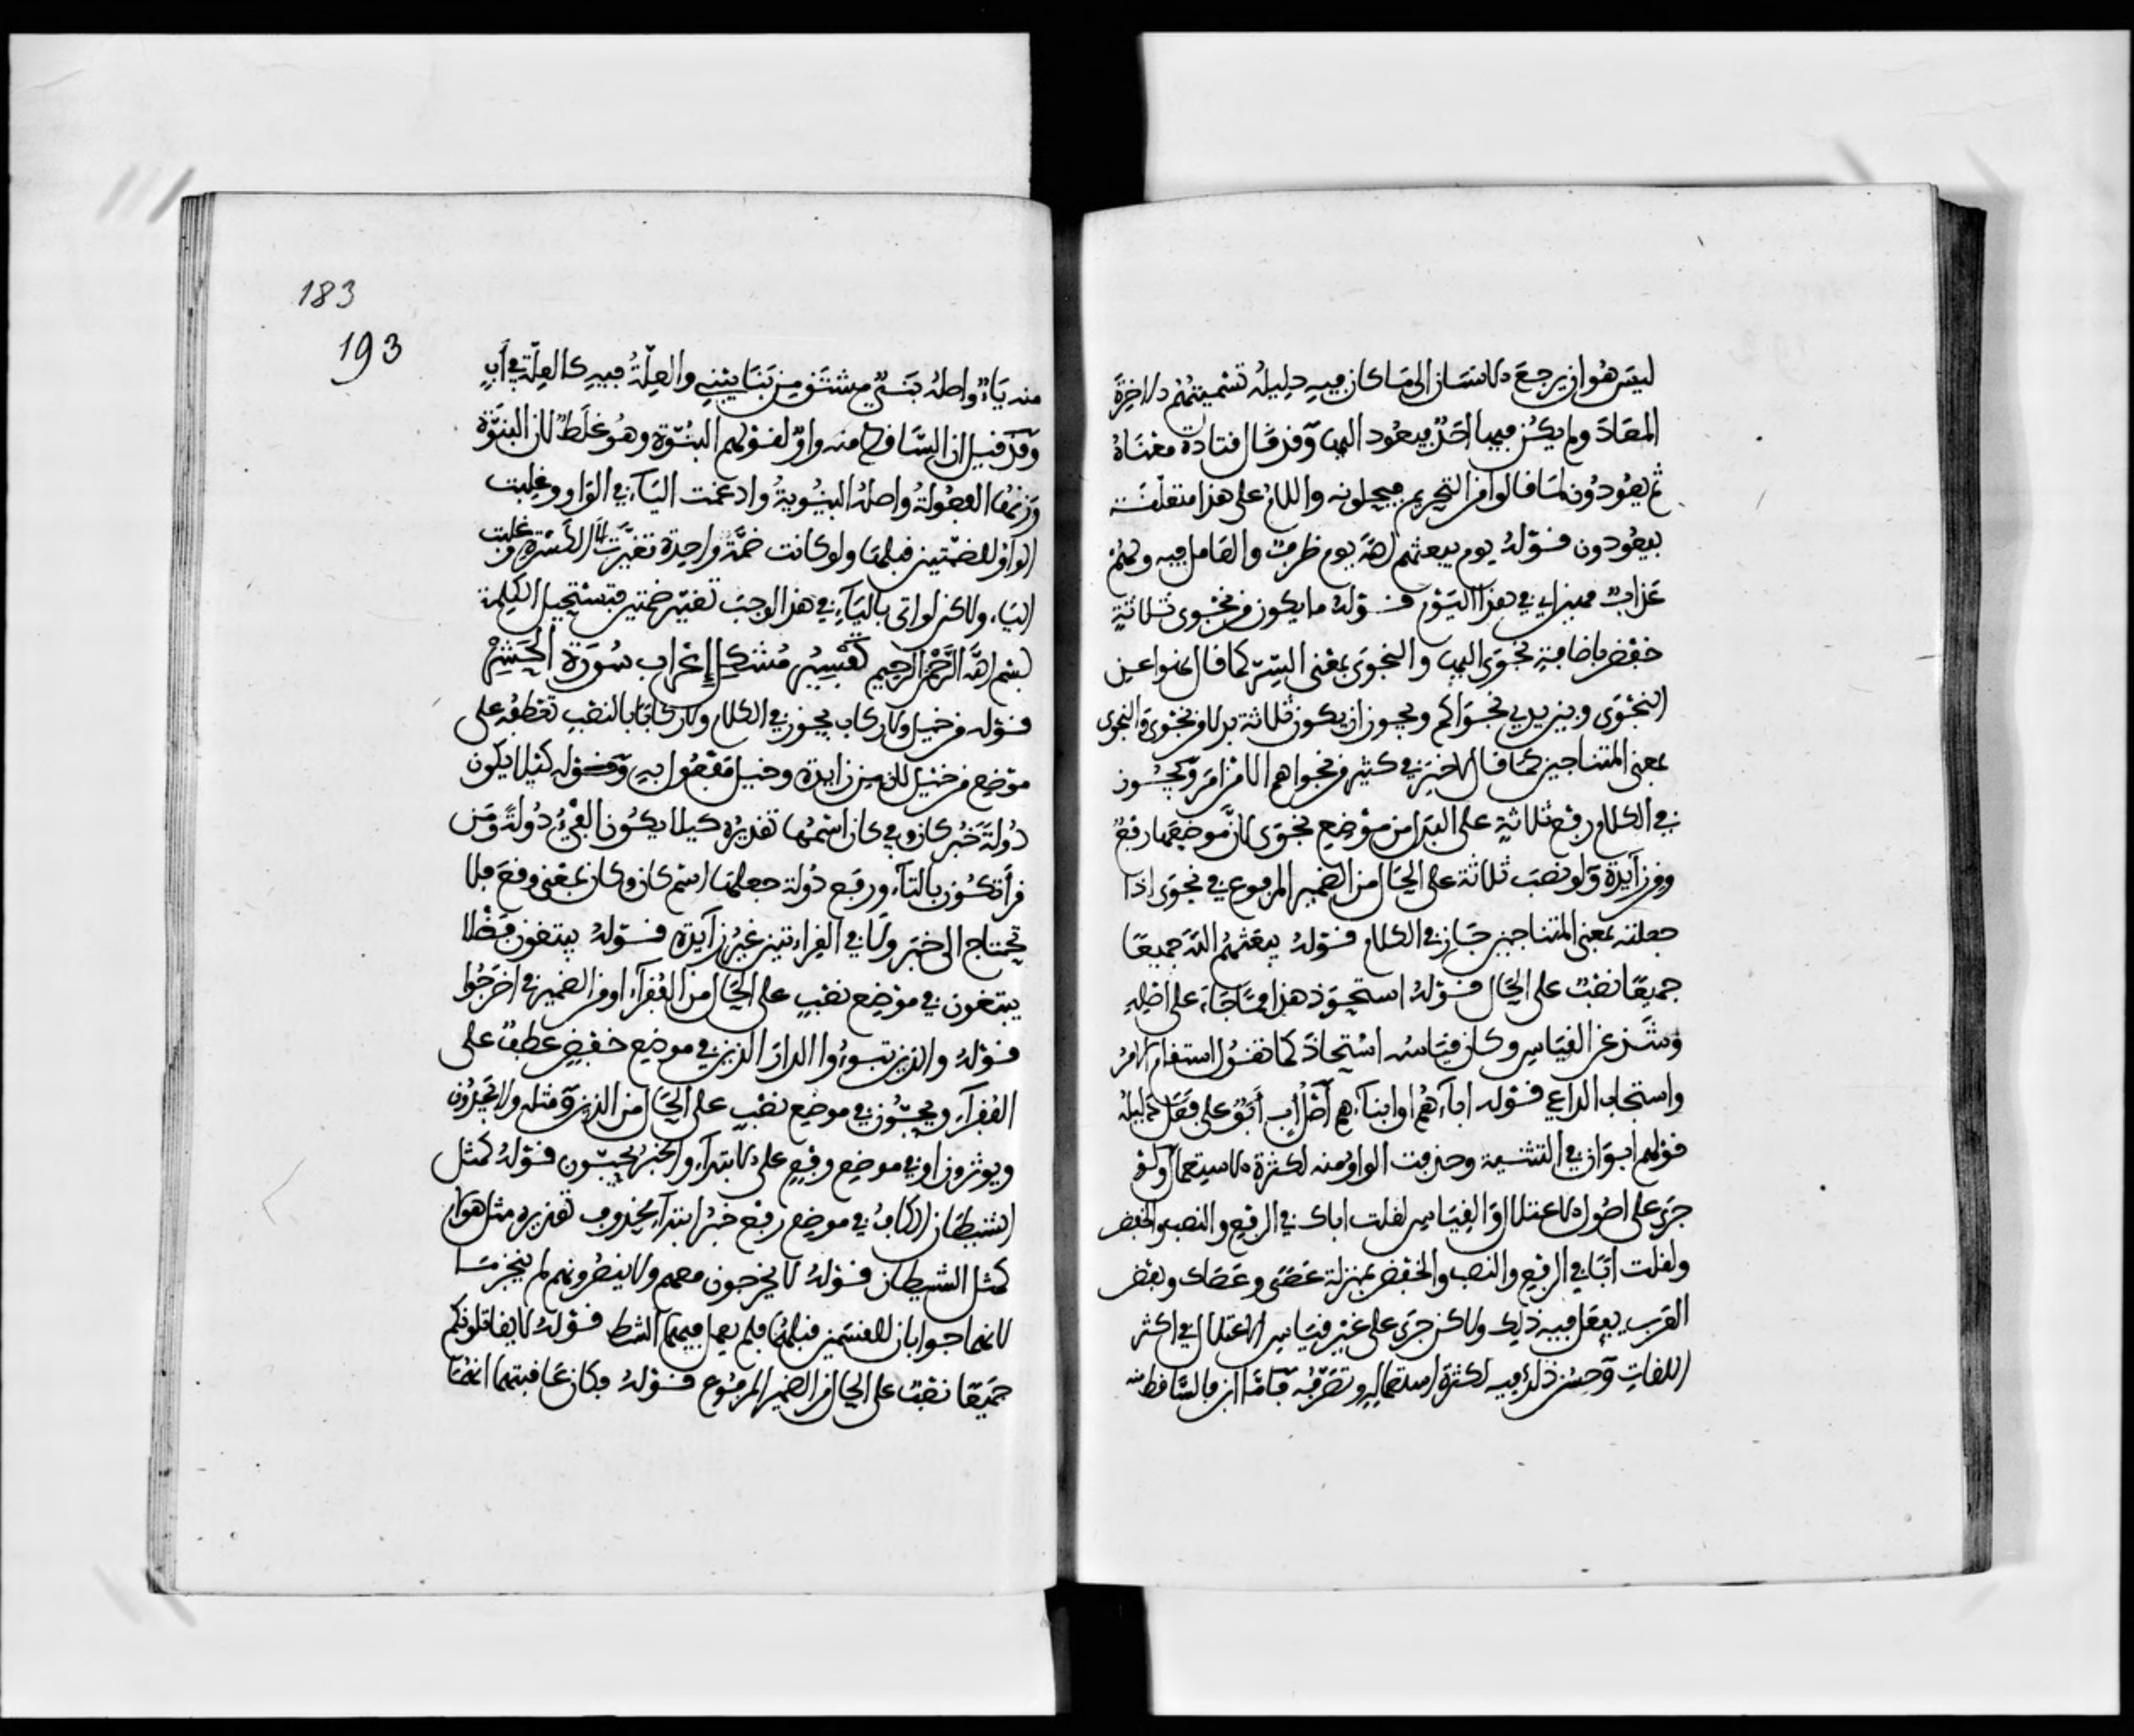 ليس هو ان يرجع الانسان الى ما كان فيه دليله تسميتهم الاخرة
المعاد ولم يكن فيها احد فيعود اليها وقد قال قتادة معناه
ثم يعودون لما قالوا من التحريم فيحلونه واللام على هذا متعلقة
بيعودون قوله يوم يبعثهم الله يوم ظرف والعامل فيه ولهم
عذاب مهين اي في هذا اليوم قوله ما يكون من نجوى ثلاثة
خفض باضافة نجوى اليها والنجوى بمعنى السر كما قال نهوا عن
النجوى وبين يدي نجواكم ويجوز ان يكون ثلاثة بدلا من نجوى والنجوى
بمعنى المتناجين كما قال لا خير في كثير من نجواهم الا من امر ويجوز
في الكلام رفع ثلاثة على البدل من موضع نجوى لان موضعها رفع
ومن زآيدة ولو نصب ثلاثة على الحال من الضمير المرفوع في نجوى اذا
جعلته بمعنى المتناجين جاز في الكلام قوله يبعثهم الله جميعا
جميعا نصب على الحال قوله استحوذ هذا مما جاء على اصله
وشذ عن القياس وكان قياسه استحاذ كما تقول استقام الامر
واستجاب الداعي قوله اباءهم او ابناءهم اصل اب ابو على فعل دليله
قولهم ابوان في التثنية وحذفت الواو منه لكثرة الاستعمال ولو
جرى على اصول الاعتلال والقياس لقلت اباك في الرفع والنصب والخفض
ولقلت ابا في الرفع والنصب والخفض بمنزلة عصى وعصاك وبعض
العرب يفعل فيه ذلك ولاكن جرى على غير قياس الاعتلال في اكثر
اللغات وحسن ذلك فيه لكثرة استعماله وتصرفه فاما ابن فالساقط منه
183
193
منه ياء واصله بني مشتق من بنا يبني والعلة فيه كالعلة في اب
وقد قيل ان الساقط منه واو لقولهم البنوة وهو غلط لان البنوة
وزنها الفعولة واصله البنوية وادغمت الياء في الواو وغلبت
الواو للضمتين قبلها ولو كانت ضمة واحدة تغيرت الى الكسرة وغلبت
الياء ولاكن لو اتى بالياء في هذا لوجب تغيير ضمتين فتستحيل الكلمة
بسم الله الرحمن الرحيم تفسير مشكل اعراب سورة الحشر
قوله من خيل ولا ركاب يجوز في الكلام ولا ركابا بالنصب تعطفه على
موضع من خيل لان من زايدة وخيل مفعول به وقوله كيلا يكون
دولة خبر كان وفي كان اسمها تقديره كيلا يكون الفيء دولة ومن
قرأ تكون بالتاء ورفع دولة جعلها اسم كان وكان بمعنى وقع فلا
تحتاج الى خبر ولا في القراءتين غير زآيدة قوله يبتغون فضلا
يبتغون في موضع نصب على الحال من الفقراء او من الضمير في اخرجوا
قوله والذين تبوءوا الدار الذين في موضع خفض عطف على
الفقراء ويحبون في موضع نصب على الحال من الذين ومثله ولا يجدون
ويوثرون او في موضع رفع على الابتداء والخبر يحبون قوله كمثل
الشيطان الكاف في موضع رفع خبر ابتداء محذوف تقديره مثل هولاء
كمثل الشيطان قوله لا يخرجون معهم ولا ينصرونهم لم ينجزما
لانهما جوابان للقسمين قبلهما فلم يعمل فيهما الشرط قوله لا يقاتلونكم
جميعا نصب على الحال من الضمير المرفوع قوله فكان عاقبتهما انهما